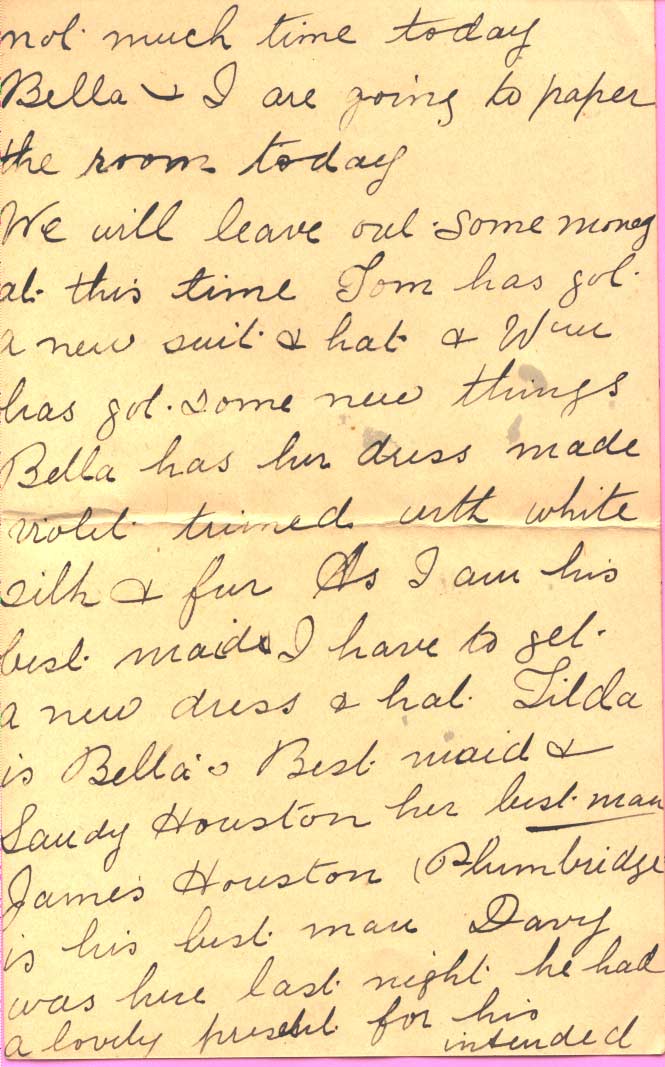 not much time today
Bella & I are going to paper
the room today
We will leave out some money
at this time Tom has got
a new suit & hat & Wm
has got some new things
Bella has her dress made
violet trimed with white
silk & fur As I am his
best maid I have to get
a new dress & hat Tilda
is Bella's Best maid &
Sandy Houston her best man
James Houston (Plumbridge
is his best man Davy
was here last night he had
a lovely present for his
intended